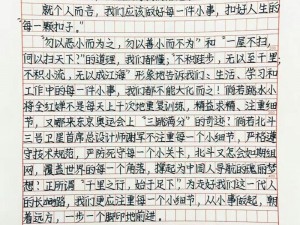 就个人而言，我们应该做好每一件小事，扣好人生的
每一颗扣子。
“勿以恶小而为之，勿以善小而不为”和“一屋不扫，
何以扫天下？”的道理，我们都懂，“不积跬步，无以至千里，
不积小流，无以成江海”形象地告诉我们：生活、学习和
工作中的每一件小事，我们都不能大而化之！倘若跳水小
将全红婵不是每天上千次地重复训练，精益求精、注重细
节，又哪来东京奥运会上“三跳满分”的奇迹！倘若北斗
三号卫星首席总设计师谢军不注重每一个小细节，严格遵
守技术规范，严防死守每一个小关卡，北斗又怎会如期组
网，覆盖世界的每一个角落，撑起为中国人导航的炫丽梦
想！正所谓“千里之行，始于足下”为走好我们这一代人
的长征路，我们更应注重每一个小细节，从小事做起，朝
着远方，一步一个脚印地前进。